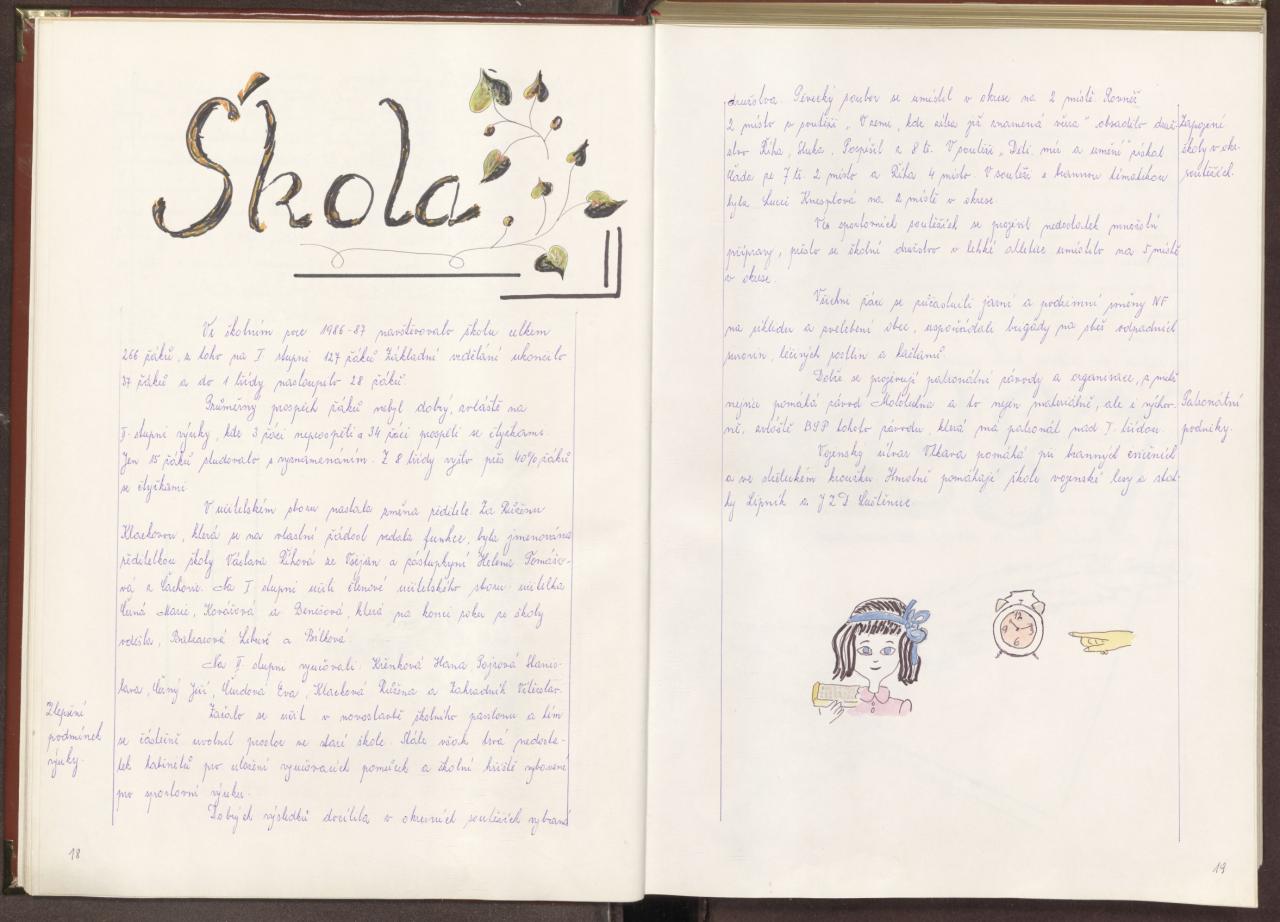 Škola
Ve školním roce 1986-87 navštěvovalo školu celkem
266 žáků, z toho na I stupni 127 žáků Základní vzdělání ukončilo
37 žáků a do 1 třídy nastoupilo 28 žáků.
Průměrný prospěch žáků nebyl dobrý, zvláště na
II. stupni výuky, kde 3 žáci neprospěli a 34 žáci prospěli se čtyřkami.
Jen 15 žáků studovalo s vyznamenáním. Z 8 třídy vyšlo přes 40% žáků
se čtyřkami.
V učitelském sboru nastala změna ředitele. Za Růženu
Klackovou, která se na vlastní žádost vzdala funkce, byla jmenována
ředitelkou školy Václava Říhová ze Vsejan a zástupkyní Helena Tomášo-
vá z Čachovic. Na I stupni učili členové učitelského sboru učitelka
Černá Marie, Kovářová a Benešová, která na konci roku ze školy
odešla, Libuše a Bílková.
Na II. stupni vyučovali: Křenková Hana Pojrová Stanis-
lava, Černý Jiří, Eva, Klacková Růžena a Zahradník Vítězslav.
Zlepšení
podmínek
výuky.
Začalo se učit v novostavbě školního pavilonu a tím
se částečně uvolnil prostor ve staré škole. Stále však trvá nedosta-
tek kabinetů pro uložení vyučovacích pomůcek a školní hřiště vybavené
pro sportovní výuku.
Dobrých výsledků docílila v okresních soutěžích vybraná
18
družstva. Pěvecký soubor se umístil v okrese na 2 místě Rovněž
2 místo v soutěži „V zemi, kde zítra již znamená včera" obsadilo druž-
stvo Říha, Sluka, Pospíšil z 8 tř. V soutěži „Děti, mír a umění" získal
ze 7 tř. 2 místo a Říha 4 místo. V soutěži s brannou tématikou
byla Lucie Knesplová na 2 místě v okrese.
Zapojení
školy v okr.
soutěžích.
Ve sportovních soutěžích se projevil nedostatek množství
přípravy, přesto se školní družstvo v lehké atletice umístilo na 5 místě
v okrese.
Všichni žáci se zúčastnili jarní a podzimní směny NF
na úklidu a zvelebení obce, uspořádali brigády na sběr odpadních
surovin, léčivých rostlin a kaštanů.
Dobře se projevují patronátní závody a organisace, z nichž
nejvíce pomáhá závod Mototechna a to nejen materiálně, ale i výchov-
ně, zvláště BSP tohoto závodu, která má patronát nad I. třídou.
Patronátní
podniky.
Vojenský útvar Vlkava pomáhá při branných cvičeních
a ve střeleckém kroužku Hmotně pomáhají škole vojenské lesy a stat-
ky Lipník a JZD Luštěnice
12
3
6
9
19